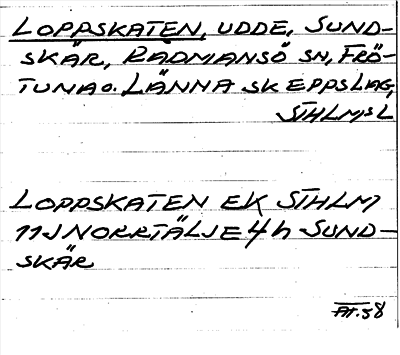 LOPPSKATEN, UDDE, SUND-
SKÄR, RADMANSÖ SN, FRÖ-
TUNA O. LÄNNA SKEPPSLAG,
STHLMS L
LOPPSKATEN EK STHLM
11J NORRTÄLJE 4h SUND-
SKÄR
AT. 58